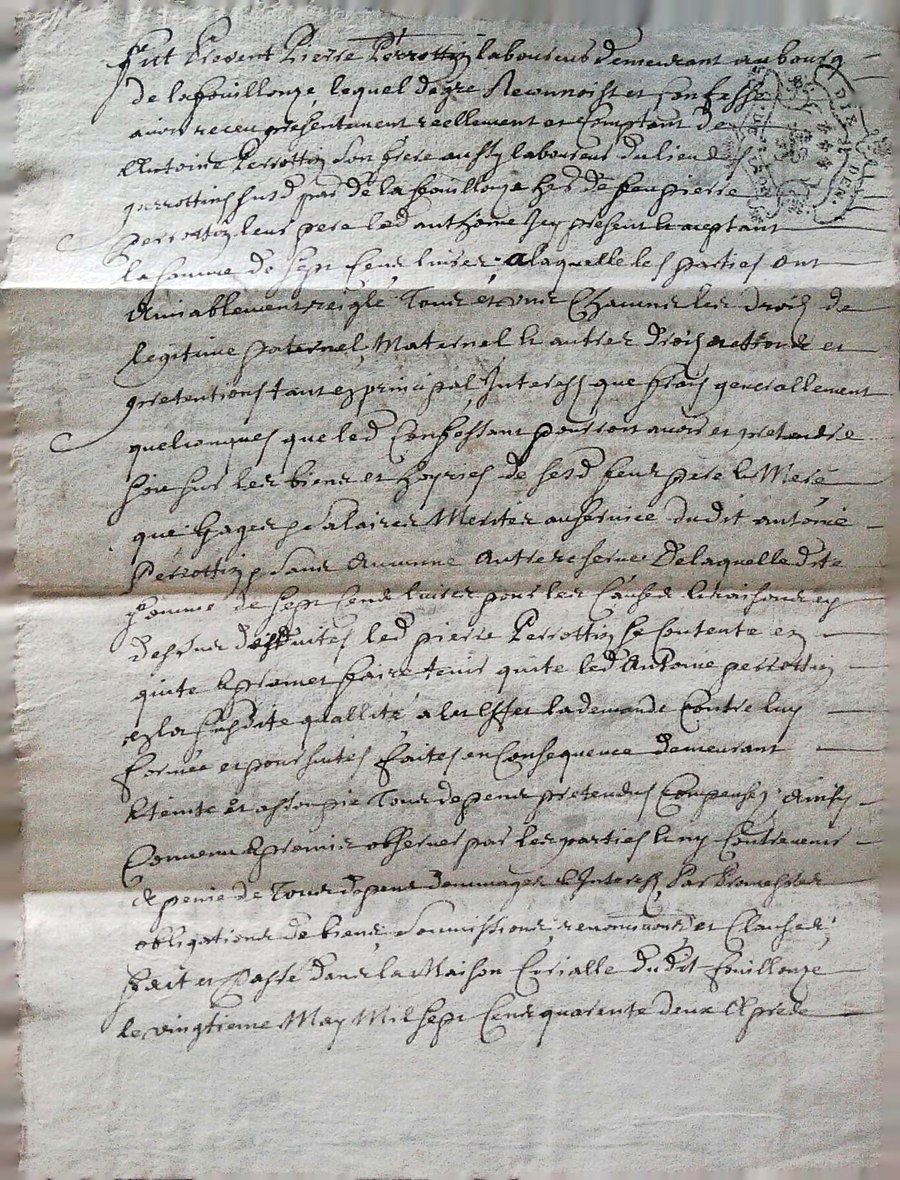 Fut Present Pierre Perrottin laboureur demeurant au bourg
de la fouillouze lequel de gre Reconnoist et Confesse
avoir receu présentement reellement et Comptant de
Antoine Perrottin Son frere aussy laboureur du lieu des
perrottins susd par de la fouillouze her de feu pierre
perrottin leur pere led anthoine Icy present & aceptant
la somme de Sept Cens livres a laquelle les parties ont
Amiablement reigle Tous et uns Chacuns les droits de
legitime paternel, Maternel & autres droits actions et
pretentions tant en principal Interests que frais generallement
quelconques que led Confessant pourroit avoir et pretendre
sur les biens et de sesd feus pere & Mere
que gages & salaires Merites au service dudit antoine
Perrottin sans Aucunne Autre reserve De laquelle dite
somme de sept Cens livres pour les Causes & raisons
dessus led pierre Perrottin Se Contente en
quite & promet faire tenir quite led Antoine perrottin
en la susdite quallité a lut effet la demande Contre luy
formée et poursuites faites en Consequence demeurant
Eteinte et assoupie Tous depens pretendus Compensez, Ainsy
Convenu & promis observer par les parties & ny Contrevenir
A penne de Tous depens dommages & Interests Par Promesses
obligations de biens, soumissions, renonciations et Clauses,
fait et Passé dans la Maison Curialle dudit fouillouze
le vingtieme May Mil sept Cens quarente deux